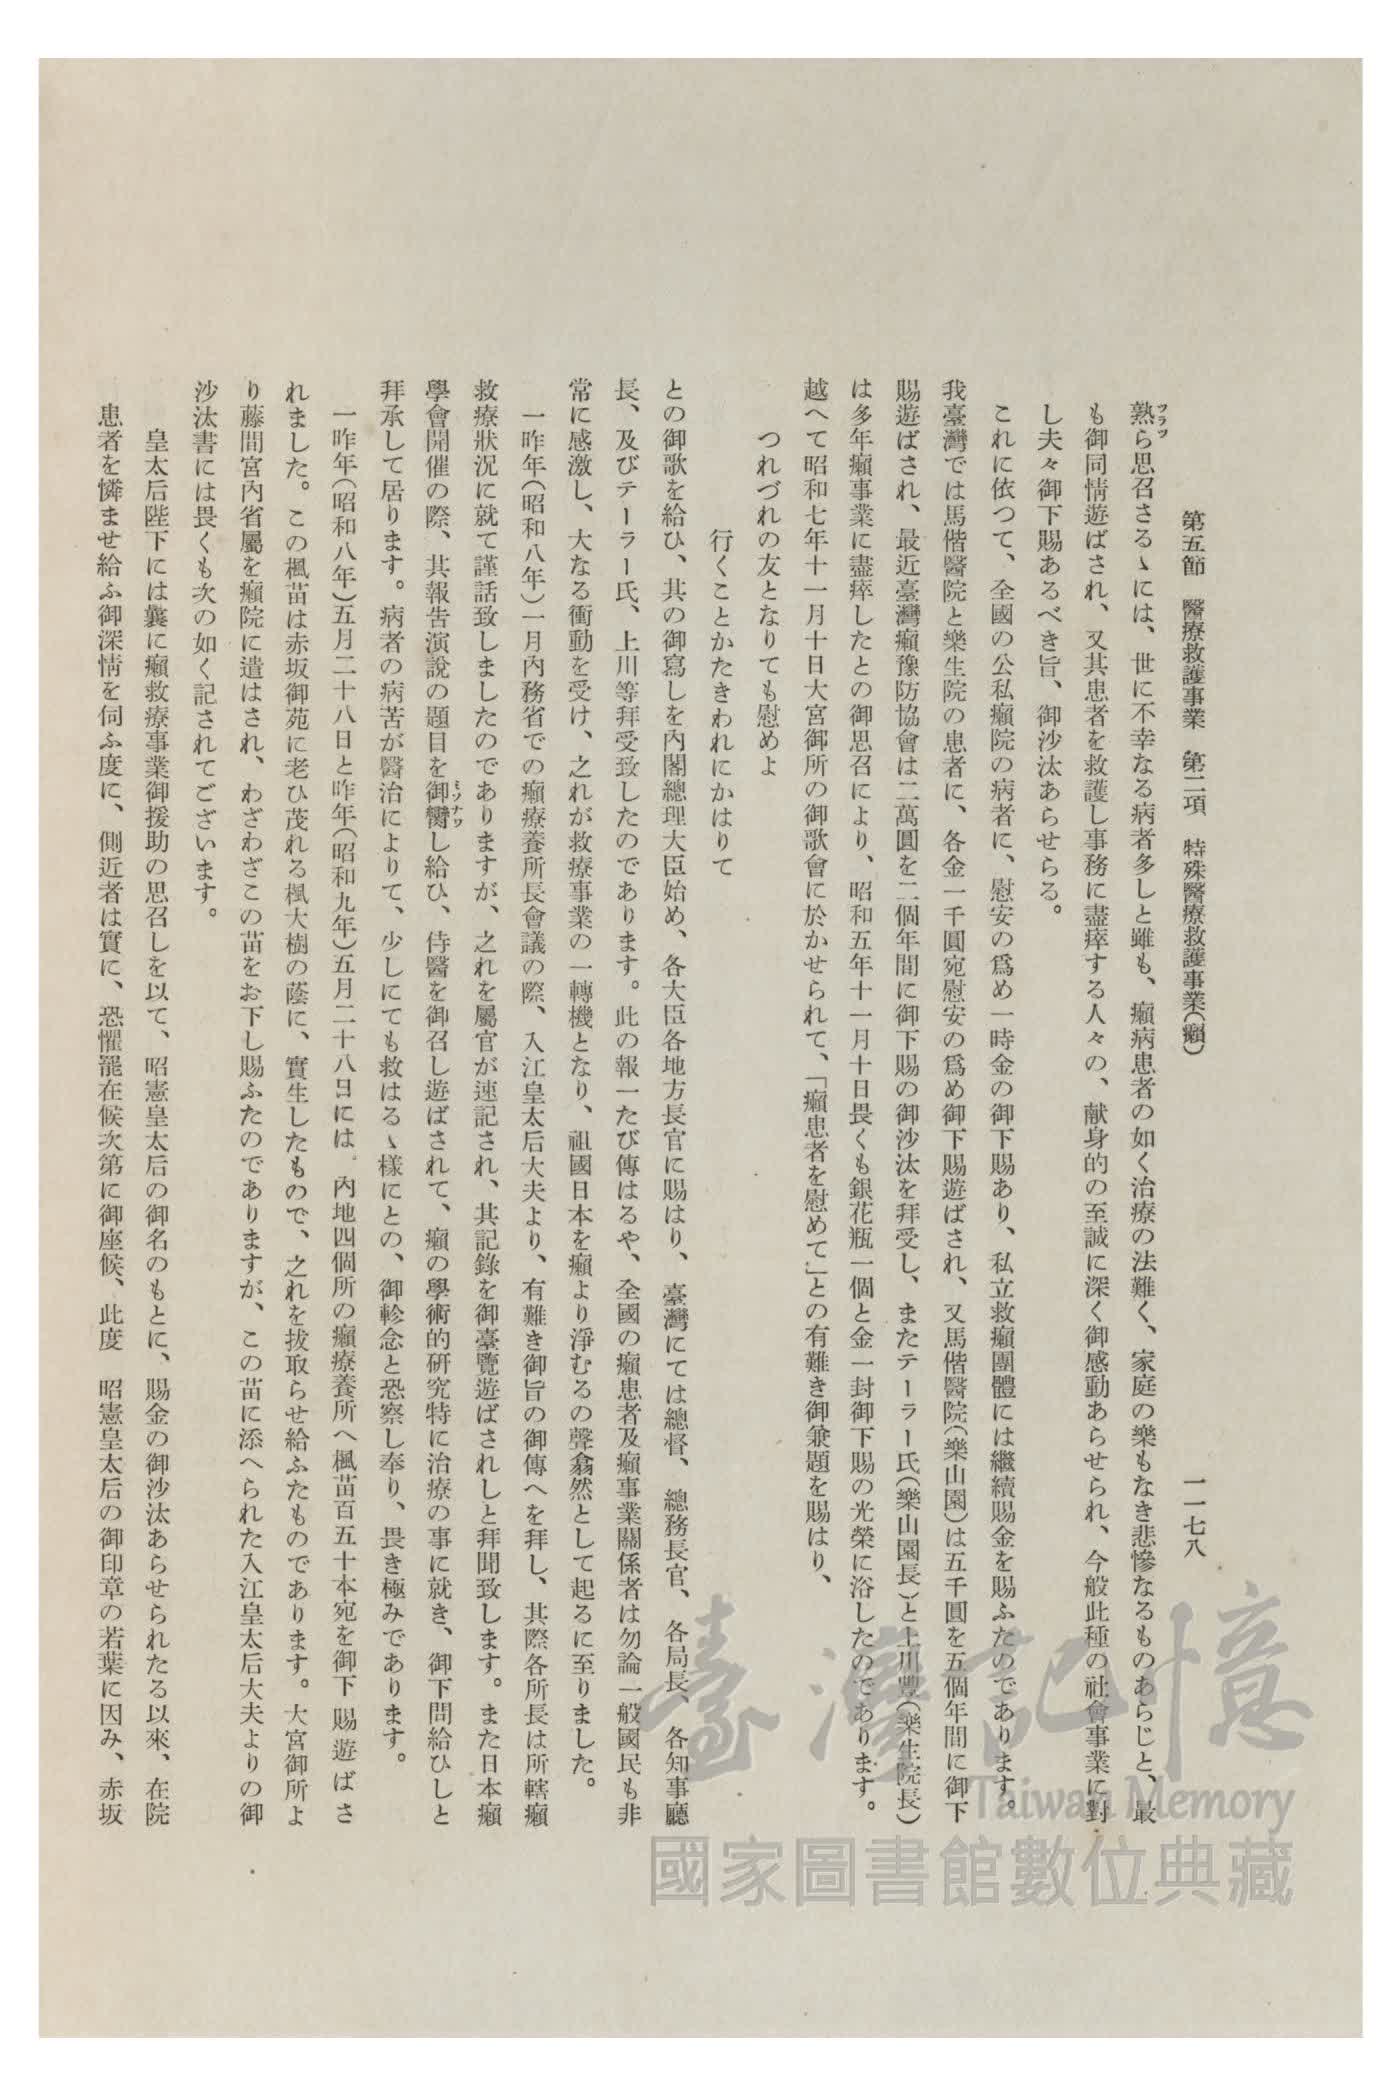 第五節 醫療救護事業 第二項 特殊醫療救護事業(癩) 一一七八
熟ら思召さるゝには、世に不幸なる病者多しと雖も、癩病患者の如く治療の法難く、家庭の樂もなき悲慘なるものあらじと、最
も御同情遊ばされ、又其患者を救護し事務に盡瘁する人々の、献身的の至誠に深く御感動あらせられ、今般此種の社會事業に對
し夫々御下賜あるべき旨、御沙汰あらせらる。
これに依つて、全國の公私癩院の病者に、慰安の爲め一時金の御下賜あり、私立救癩團體には繼續賜金を賜ふたのであります。
我臺灣では馬偕醫院と樂生院の患者に、各金一千圓宛慰安の爲め御下賜遊ばされ、又馬偕醫院(樂山園)は五千圓を五個年間に御下
賜遊ばされ、最近臺灣癩豫防協會は二萬圓を二個年間に御下賜の御沙汰を拜受し、またテーラー氏(樂山園長)と上川豐(樂生院長)
は多年癩事業に盡瘁したとの御思召により、昭和五年十一月十日畏くも銀花瓶一個と金一封御下賜の光榮に浴したのであります。
越へて昭和七年十一月十日大宮御所の御歌會に於かせられて、「癩患者を慰めて」との有難き御兼題を賜はり、
つれづれの友となりても慰めよ
行くことかたきわれにかはりて
との御歌を給ひ、其の御寫しを內閣總理大臣始め、各大臣各地方長官に賜はり、臺灣にては總督、總務長官、各局長、各知事廳
長、及びテーラー氏、上川等拜受致したのであります。此の報一たび傳はるや、全國の癩患者及癩事業關係者は勿論一般國民も非
常に感激し、大なる衝動を受け、之れが救療事業の一轉機となり、祖國日本を癩より淨むるの聲翕然として起るに至りました。
一昨年(昭和八年)一月內務省での癩療養所長會議の際、入江皇太后大夫より、有難き御旨の御傳へを拜し、其際各所長は所轄癩
救療狀況に就て謹話致しましたのでありますが、之れを屬官が速記され、其記錄を御臺覽遊ばされしと拜聞致します。また日本癩
學會開催の際、其報告演說の題目を御し給ひ、侍醫を御召し遊ばされて、癩の學術的研究特に治療の事に就き、御下問給ひしと
拜承して居ります。病者の病苦が醫治によりて、少しにても救はるゝ樣にとの、御軫念と恐察し奉り、畏き極みであります。
一昨年(昭和八年)五月二十八日と昨年(昭和九年)五月二十八日には、內地四個所の癩療養所へ楓苗百五十本宛を御下賜遊ばさ
れました。この楓苗は赤坂御苑に老ひ茂れる楓大樹の蔭に、實生したもので、之れを拔取らせ給ふたものであります。大宮御所よ
り藤間宮內省屬を癩院に遣はされ、わざわざこの苗をお下し賜ふたのでありますが、この苗に添へられた入江皇太后大夫よりの御
沙汰書には畏くも次の如く記されてございます。
皇太后陛下には曩に癩救療事業御援助の思召しを以て、昭憲皇太后の御名のもとに、賜金の御沙汰あらせられたる以來、在院
患者を憐ませ給ふ御深情を伺ふ度に、側近者は實に、恐懼罷在候次第に御座候、此度 昭憲皇太后の御印章の若葉に因み、赤坂
臺灣記憶
Taiwan Memory
國家圖書館數位典藏